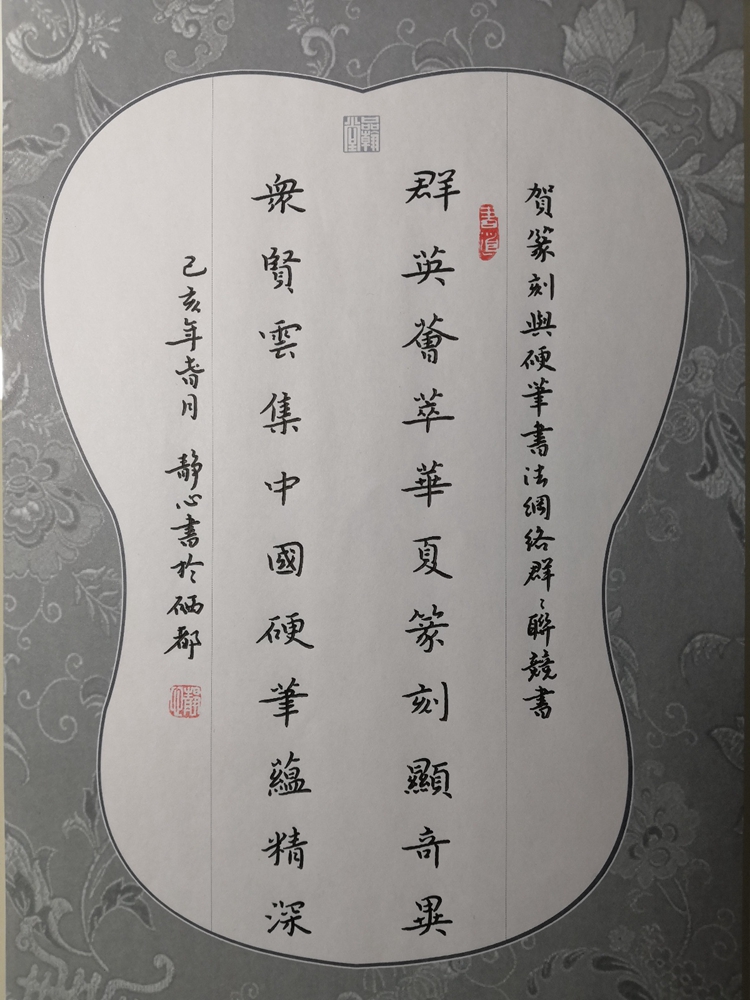 賀篆刻與硬筆書法網络群〻聯競書
群英薈萃華夏篆刻顯奇異
衆賢雲集中國硬筆蘊精深
己亥年春月 靜心書於硒都
品翰堂
書道
靜心